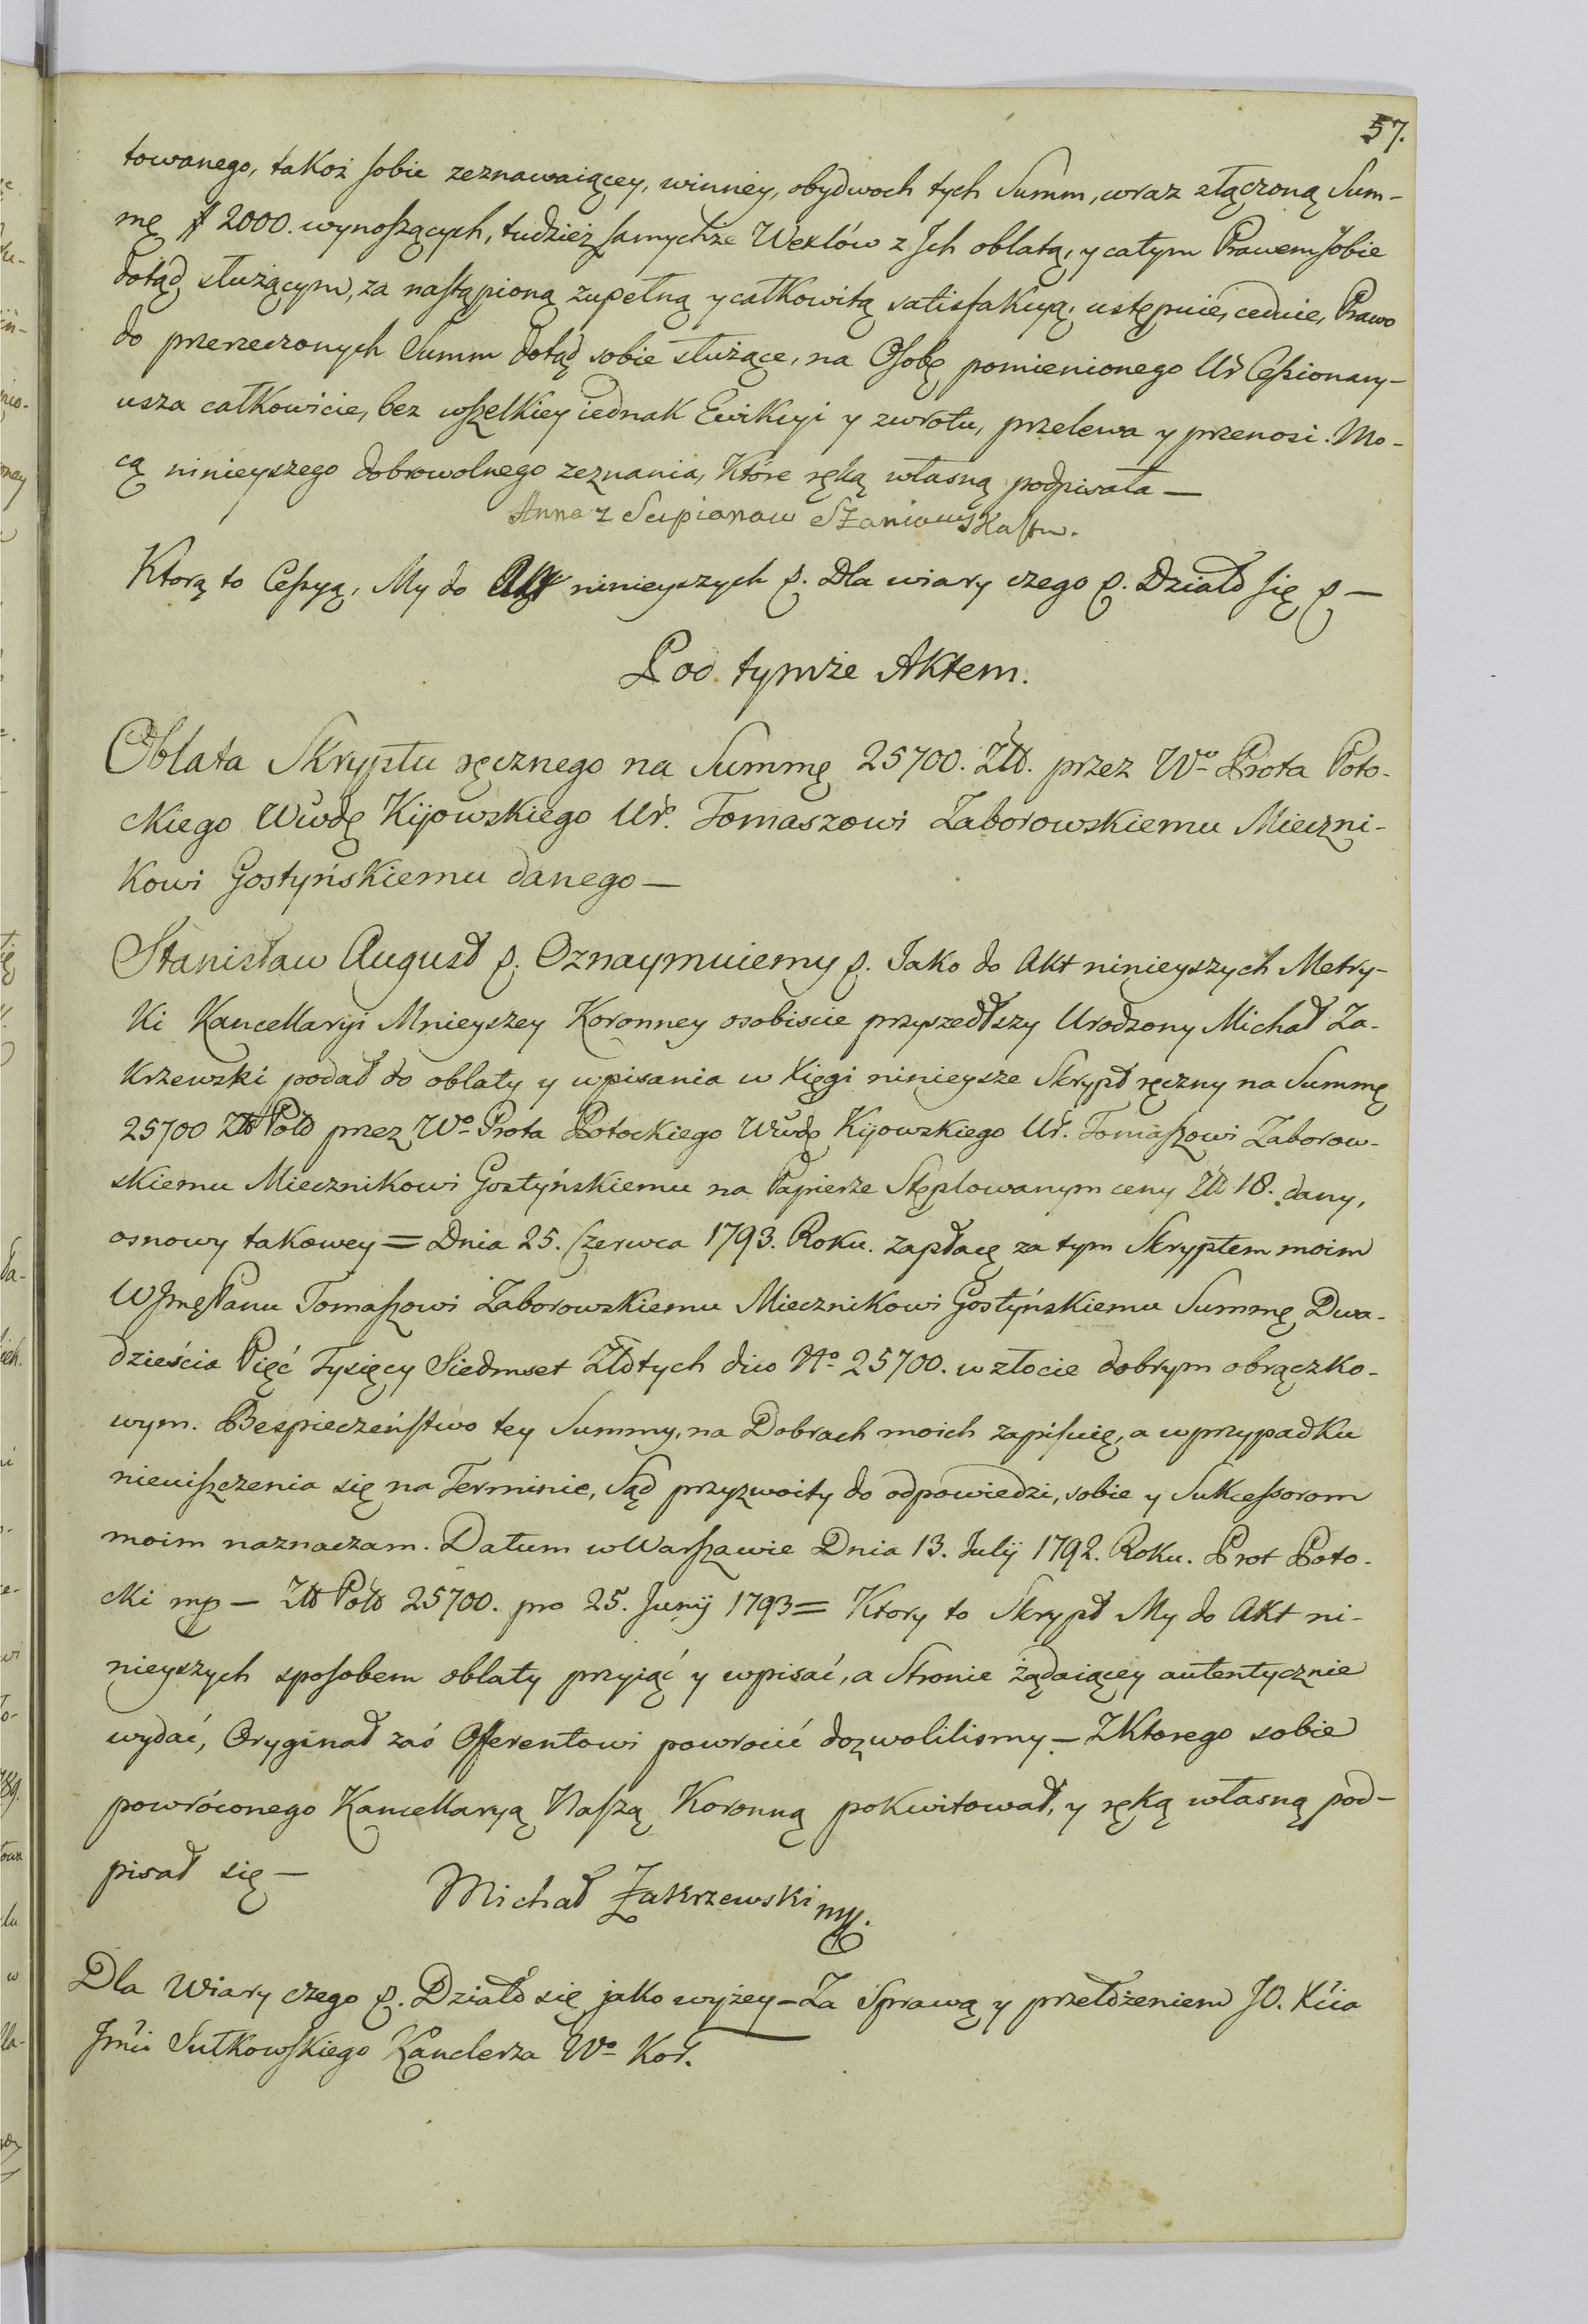 57.
towanego, takoż sobie zeznawaiącey, winney, obydwoch tych Summ, wraz złączoną Sum-
mę # 2000. wynoszących, tudzież samychże Wexlów z Ich oblatą, y całym Prawem sobie
dotąd służącym, za nastąpioną zupełną y całkowitą satisfakcyą, ustępuie, ceduie, Prawo
do przerzeczonych Summ dotąd sobie służące, na Osobę pomienionego Ur Cessionary-
usza całkowicie, bez wszelkiey iednak Ewikcyi y zwrotu, przelewa y przenosi. Mo-
cą ninieyszego dobrowolnego zeznania, które ręką własną podpisała —
Anna z
Którą to Cessyą, My do Akt ninieyszych p. Dla wiary czego p. Działo się p —
Pod tymże Aktem.
Oblata Skryptu ręcznego na Summę 25700. Złł. przez Wo Prota Poto-
ckiego Wwdę Kijowskiego Ur. Tomaszowi Zaborowskiemu Mieczni-
kowi Gostyńskiemu danego —
Stanisław August p. Oznaymuiemy p. Jako do Akt ninieyszych Metry-
ki Kancellaryi Mnieyszey Koronney osobiscie przyszedłszy Urodzony Michał Za-
krzewski podał do oblaty y wpisania w Xięgi ninieysze Skrypt ręczny na Summę
25700 Złł Poll przez Wo Prota Potockiego Wwdę Kijowskiego Ur. Tomaszowi Zaborow-
skiemu Miecznikowi Gostyńskiemu na Papierze Stęplowanym ceny Złł 18. dany,
osnowy takowey = Dnia 25. Czerwca 1793. Roku. zapłacę za tym Skryptem moim
WJmęPanu Tomaszowi Zaborowskiemu Miecznikowi Gostyńskiemu Summę Dwa-
dzieścia Pięć Tysięcy Siedmset Złotych dico No 25700. w złocie dobrym obrączko-
wym. Bespieczeństwo tey Summy, na Dobrach moich zapisuię, a w przypadku
nieuiszczenia się na Terminie, Sąd przyzwoity do odpowiedzi, sobie y Sukcessorom
moim naznaczam. Datum w Warszawie Dnia 13. Julij 1792. Roku. Prot Poto-
cki mp — Złł Poll 25700. pro 25. Junij 1793 = Ktory to Skrypt My do Akt ni-
nieyszych sposobem oblaty przyiąć y wpisać, a Stronie żądaiącey autentycznie
wydać, Oryginał zaś Offerentowi powrocić dozwolilismy — Z Ktorego sobie
powróconego Kancellaryą Naszą Koronną pokwitował, y ręką własną pod-
pisał się —
Michał Zakrzewski mp.
Dla Wiary czego p. Działo się jako wyżey — Za Sprawą y przełożeniem JO. Xcia
Jmci Sułkowskiego Kanclerza Wo Kor.